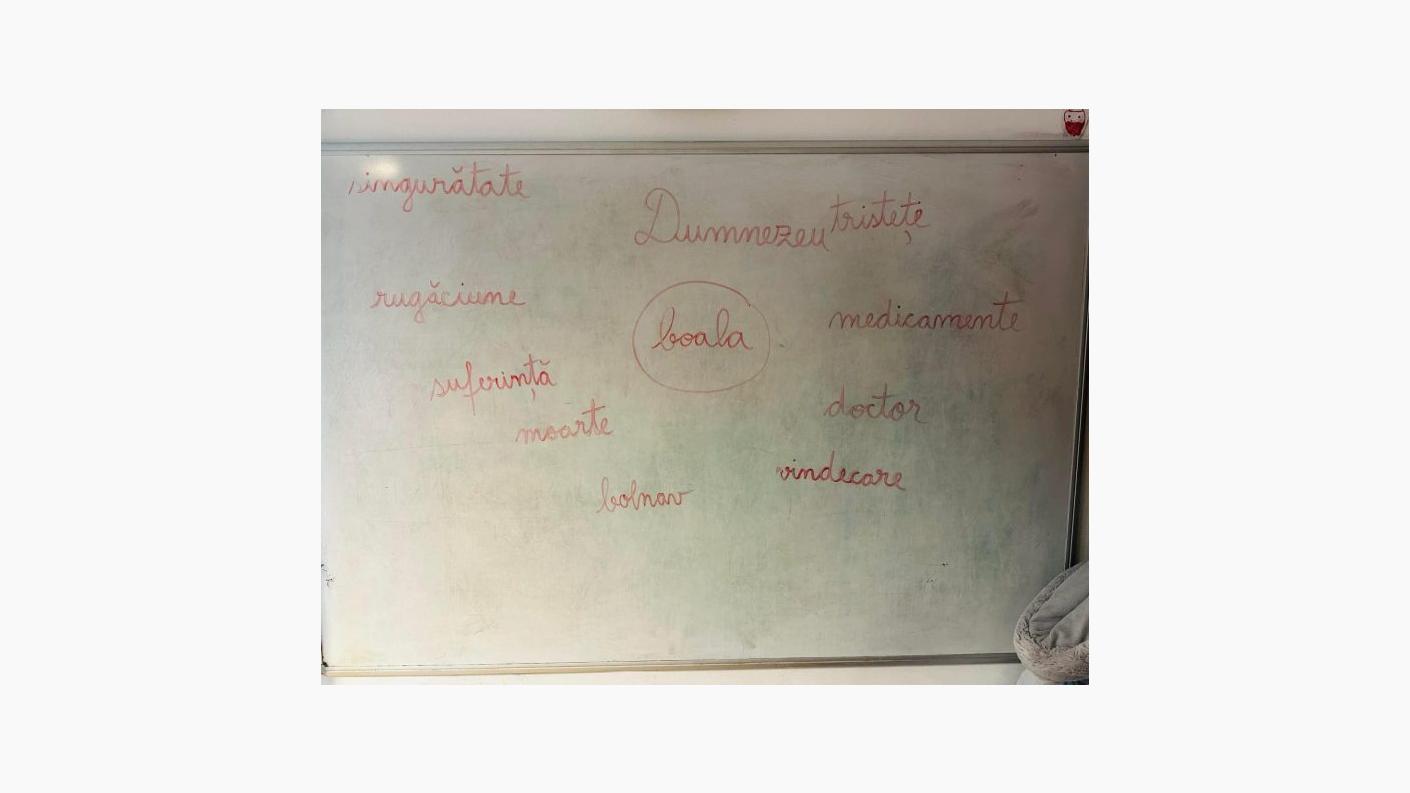 singurătate
Dumnezeu
tristețe
rugăciune
boala
medicamente
suferință
doctor
moarte
vindecare
bolnav